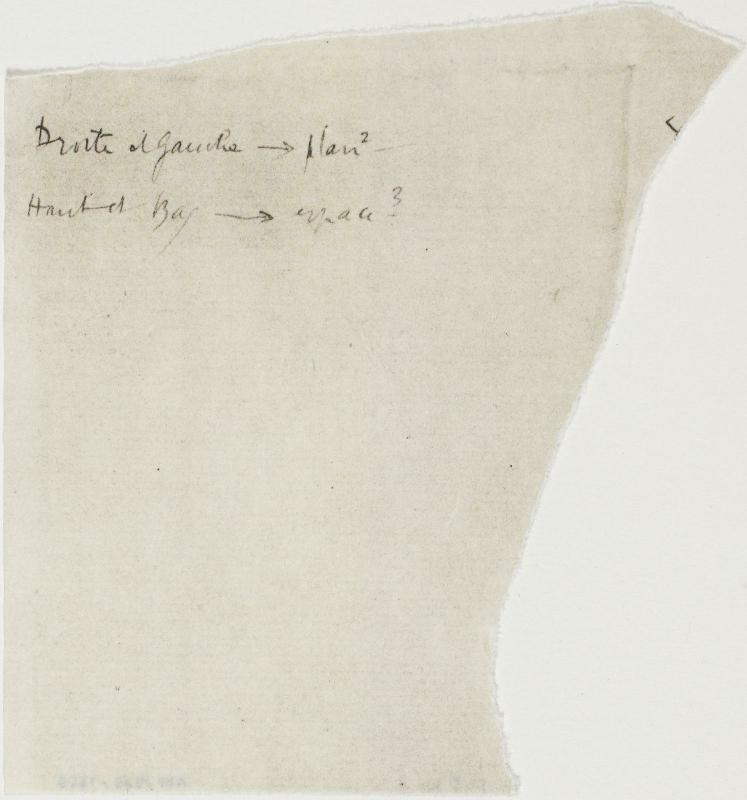 Droite et Gauche → plan²
Haut et Bas → espace³